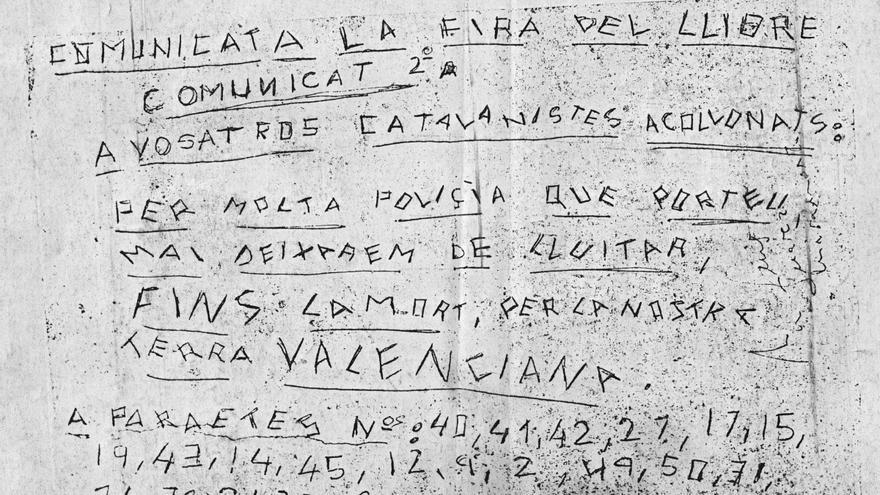 COMUNICAT A LA FIRA DEL LLIBRE
COMUNICAT 2º
A VOSATROS CATALANISTES ACOLLONATS:
PER MOLTA POLIÇIA QUE PORTEU,
MAI DEIXAREM DE LLUITAR,
FINS LA MORT, PER LA NOSTRA
TERRA VALENCIANA.
A PARAETES Nos: 40, 41, 42, 27, 17, 15,
19, 43, 14, 45, 12, 9, 2, 49, 50, 31,